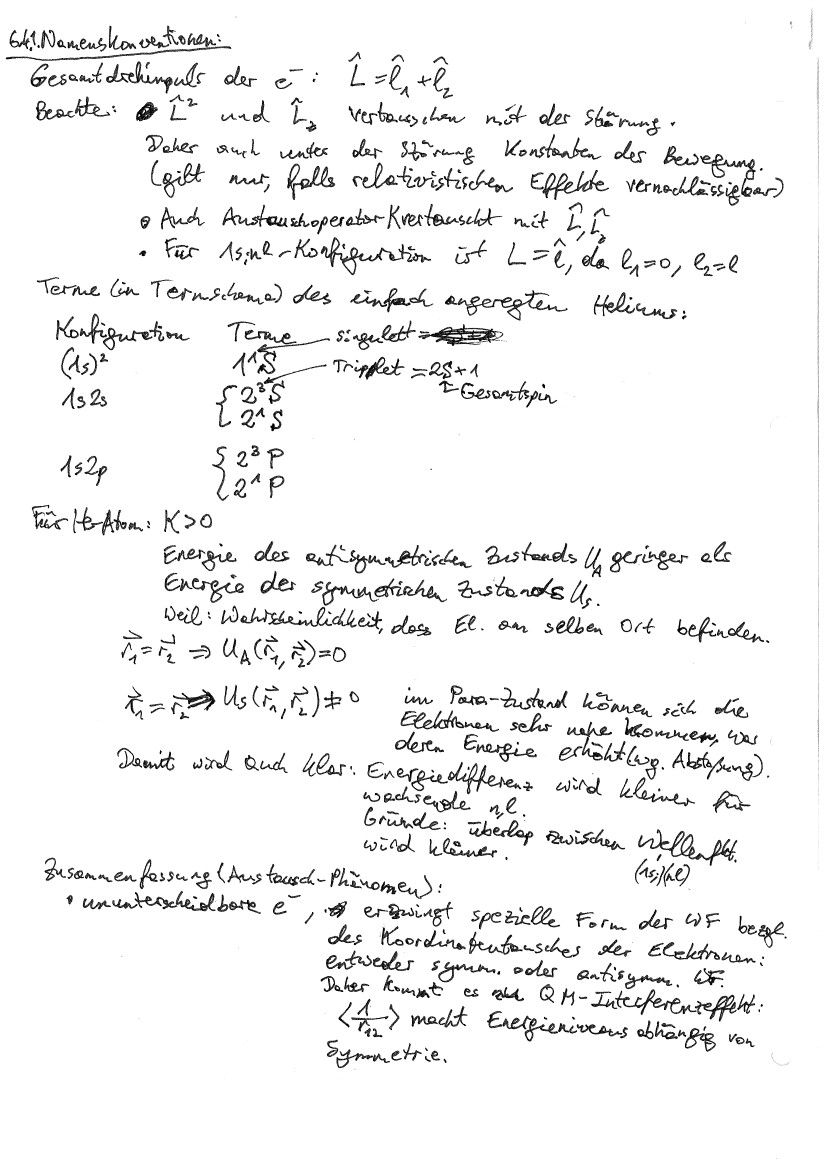 6.4.1. Namenskonventionen:
Gesamtdrehimpuls der e⁻: L̂ = l̂₁ + l̂₂
Beachte: • L̂² und L̂_z vertauschen mit der Störung.
Daher auch unter der Störung Konstanten der Bewegung.
(gilt nur, falls relativistischen Effekte vernachlässigbar)
• Auch Austauschoperator K vertauscht mit L̂, L̂_z
• Für 1s;nl-Konfiguration ist L = l̂, da l₁=0, l₂=l
Terme (in Termschema) des einfach angeregten Heliums:
Konfiguration Terme singulett =
(1s)² 1¹S Tripplet = 2S+1
1s2s { 2³S Gesamtspin
2¹S
1s2p { 2³P
2¹P
Für He-Atom: K > 0
Energie des antisymmetrischen Zustands U_A geringer als
Energie der symmetrischen Zustands U_s.
Weil: Wahrscheinlichkeit, dass El. am selben Ort befinden.
r⃗₁ = r⃗₂ ⇒ U_A(r⃗₁, r⃗₂) = 0
r⃗₁ = r⃗₂ ⇒ U_s(r⃗₁, r⃗₂) ≠ 0 im Para-Zustand können sich die
Elektronen sehr nahe kommen, was
deren Energie erhöht (wg. Abstoßung).
Damit wird auch klar: Energiedifferenz wird kleiner für
wachsende n,l.
Gründe: überlap zwischen Wellenfkt.
wird kleiner. (1s)(nl)
Zusammenfassung (Austausch-Phänomen):
• ununterscheidbare e⁻, erzwingt spezielle Form der WF bezgl.
des Koordinatentausches der Elektronen:
entweder symm. oder antisymm. WF.
Daher kommt es zu QM-Interferenzeffekt:
⟨1/r₁₂⟩ macht Energieniveaus abhängig von
Symmetrie.